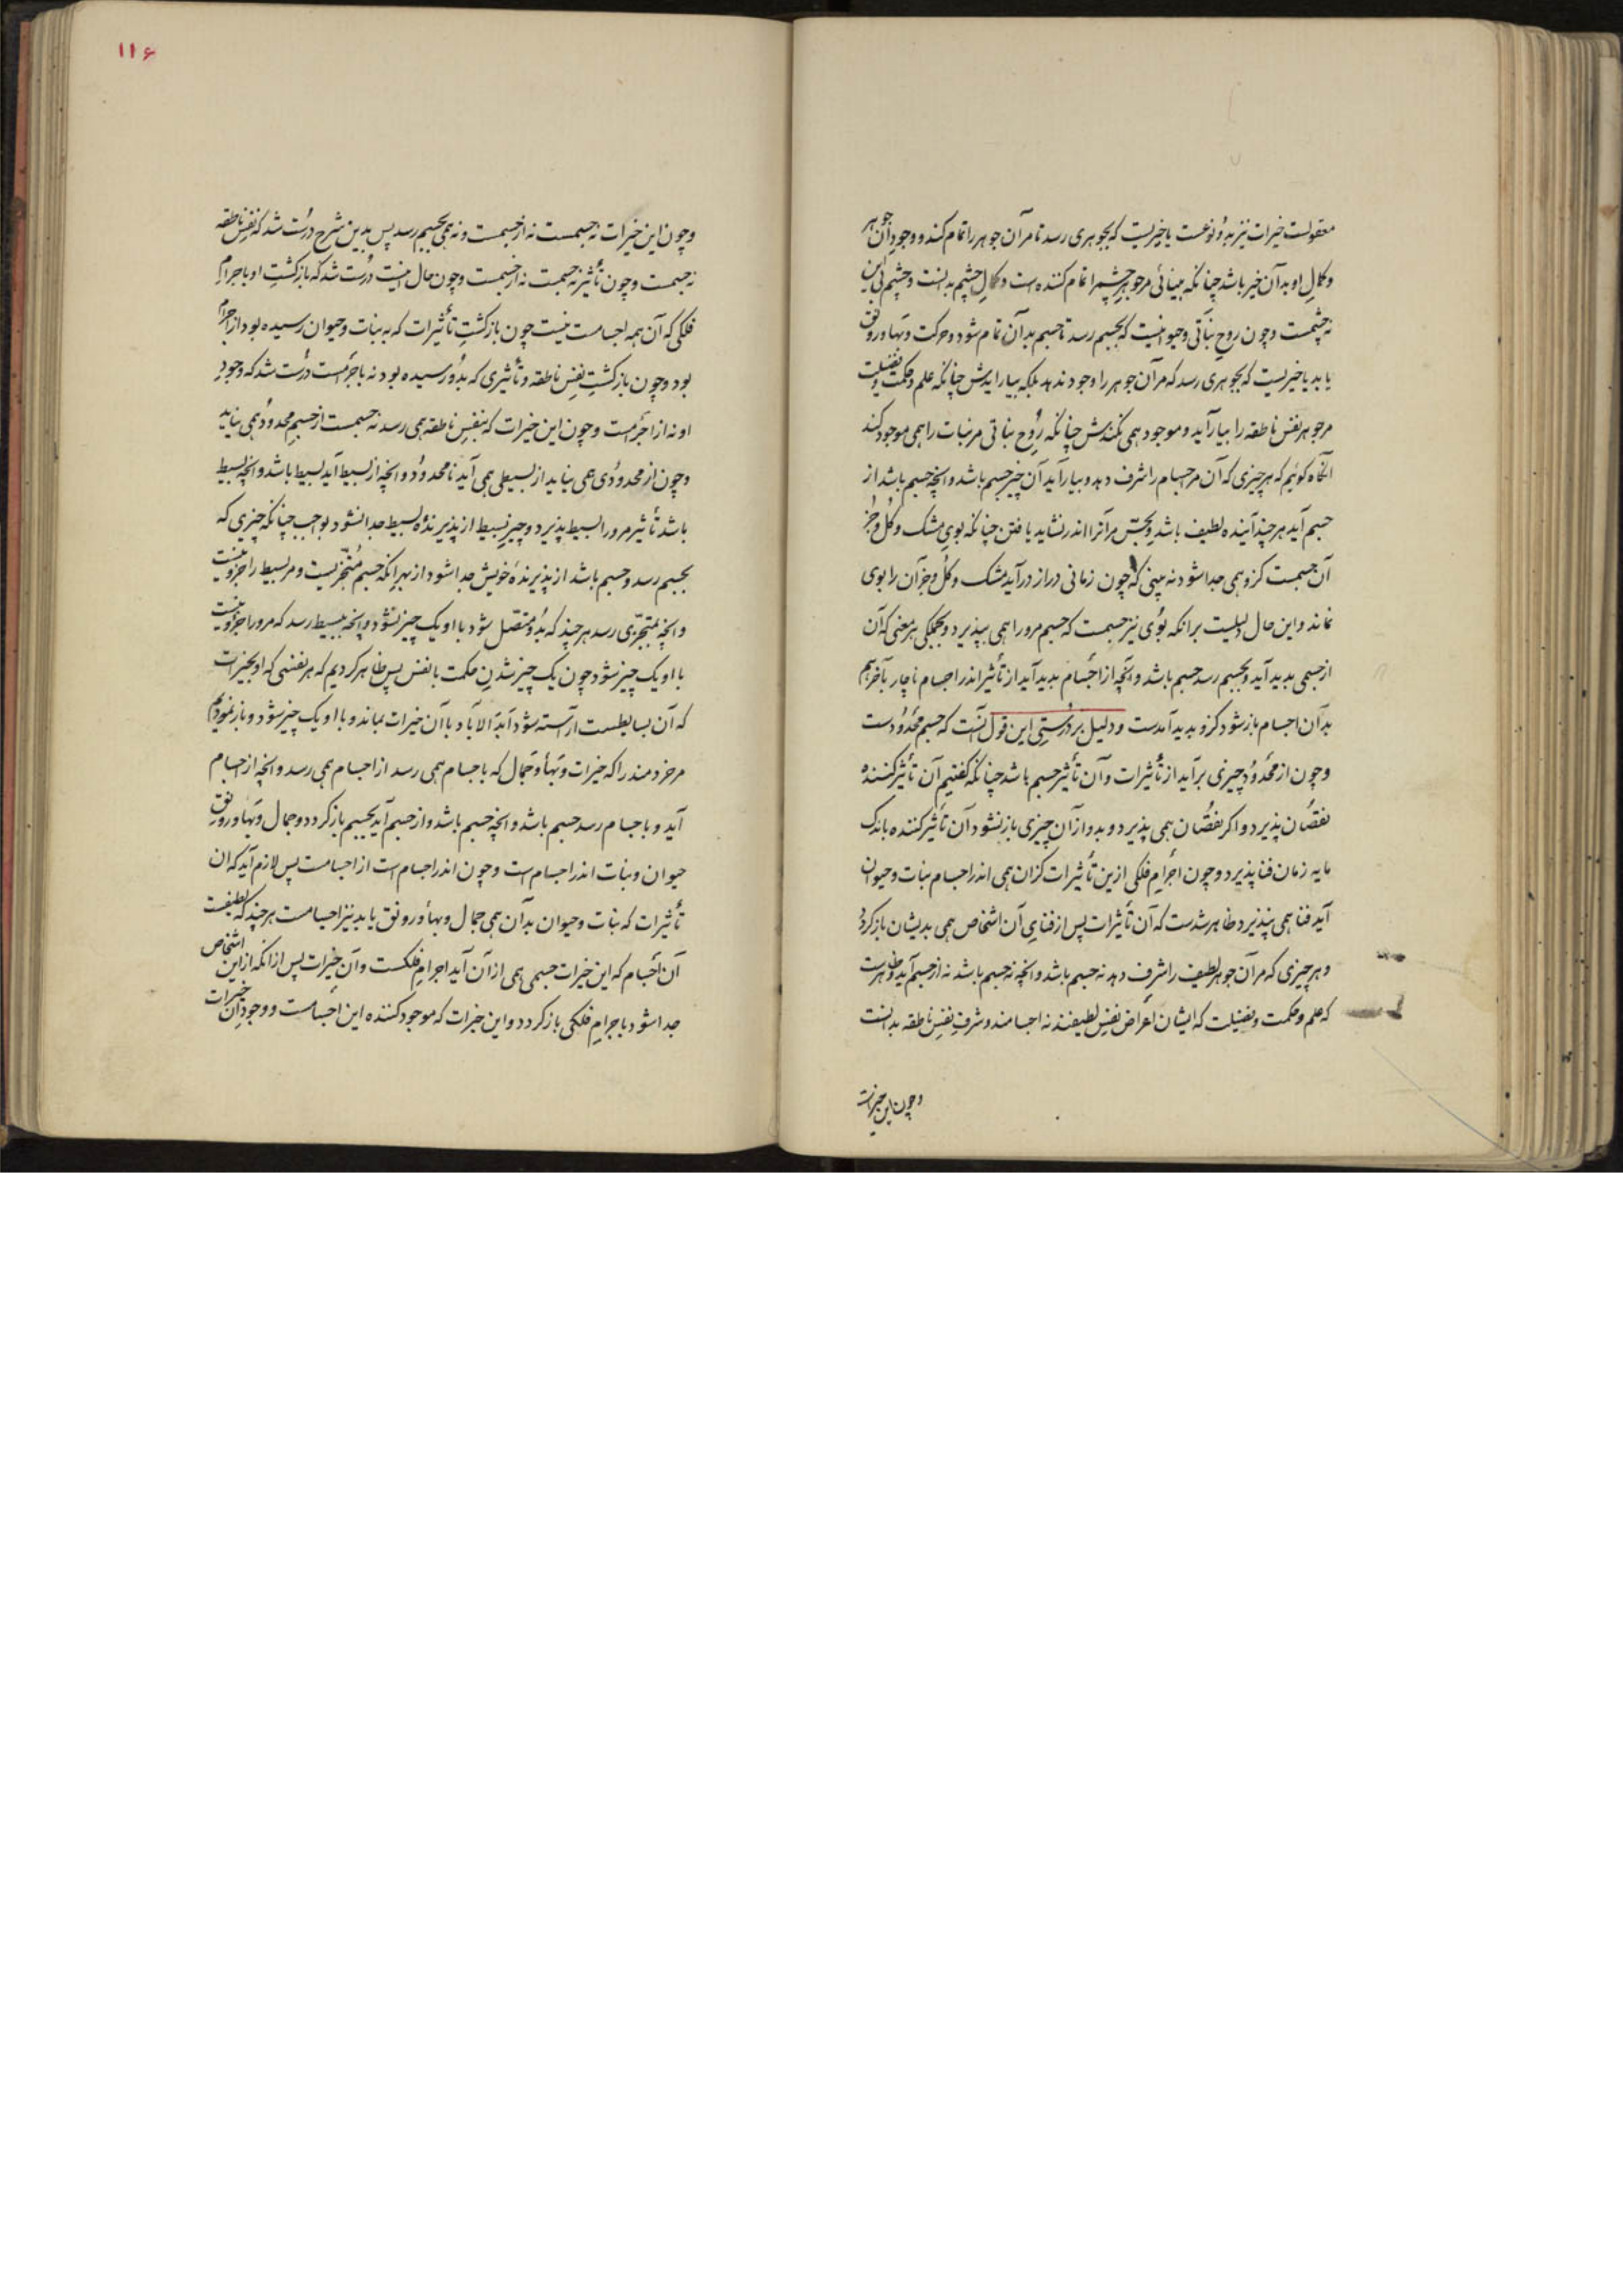 معقولست خیرات نیز بدو نوعست یا خیریست که بجوهری رسد تا مر آن جوهر را تمام کند و وجود آن جوهر
و کمال او بدآن خیر باشد چنانکه بینائی مر جوهر چشم را تمام کننده است و کمال چشم بدانست و چشم بی این
نه چشمست و چون روح نباتی و حیوانیست که بجسم رسد تا جسم بدآن تمام شود و حرکت و بها و رونق
یابد یا خیریست که بجوهری رسد که مر آن جوهر را وجود ندهد بلکه بیارایدش چنانکه علم و حکمت و فضیلت
مر جوهر نفس ناطقه را بیارآید و موجود همی نکندش چنانکه روح نباتی مر نبات را همی موجود کند
آنگاه گوئیم که هر چیزی که آن مر اجسام را شرف دهد و بیارآید آن چیز جسم باشد و آنچه جسم باشد از
جسم آید هر چند آینده لطیف باشد و بحس مر آنرا اندر نشاید یافتن چنانکه بوی مشک و گل و جز
آن جسمست کزو همی جدا شود نه بینی که چون زمانی دراز درآید مشک و گل و جز آن را بوی
نماند و این حال دلیلست برانکه بوی نیز جسمست که جسم مرورا همی بپذیرد و بجملگی هر معنی که آن
از جسمی پدید آید و بجسم رسد جسم باشد و آنچه از اجسام پدید آید از تأثیر اندر اجسام ناچار بآخر هم
بدآن اجسام باز شود کزو پدید آمدست و دلیل بر درستی این قول آنست که جسم محدودست
و چون از محدود چیزی برآید از تأثیرات و آن تأثیر جسم باشد چنانکه گفتیم آن تأثیر کننده
نقصان پذیرد و اگر نقصان همی پذیرد و بدو از آن چیزی باز نشود آن تأثیر کننده باندک
مایه زمان فنا پذیرد و چون اجرام فلکی ازین تأثیرات کزان همی اندر اجسام نبات و حیوان
آید فنا همی نپذیرد ظاهر شدست که آن تأثیرات پس از فنای آن اشخاص همی بدیشان باز گردد
و هر چیزی که مر آن جوهر لطیف را شرف دهد نه جسم باشد و آنچه نه جسم باشد نه از جسم آید و ظاهرست
که علم و حکمت و فضیلت که ایشان اعراض نفس لطیفند نه اجسامند و شرف نفس ناطقه بدانست
و چون این خیرات
۱۱۶
و چون این خیرات نه جسمست نه از جسمست و نه همی بجسم رسد پس بدین شرح درست شد که نفس ناطقه
نه جسمست و چون تأثیر نه جسمست نه از جسمست و چون حال اینست درست شد که بازگشت او باجرام
فلکی که آن همه اجسامست نیست چون بازگشت تأثیرات که به نبات و حیوان رسیده بود از اجرام
بود و چون بازگشت نفس ناطقه و تأثیری که بدو رسیده بود نه باجرامست درست شد که وجود
او نه از اجرامست و چون این خیرات که بنفس ناطقه همی رسد نه جسمست از جسم محدود همی نیاید
و چون از محدودی همی نیاید از بسیطی همی آید نامحدود و آنچه از بسیط آید بسیط باشد و آنچه بسیط
باشد تأثیر مرورا بسیط پذیرد و چیز بسیط از پذیرنده بسیط جدا نشود بواجب چنانکه چیزی که
بجسم رسد و جسم باشد از پذیرنده خویش جدا شود از بهر آنکه جسم متجزیست و مر بسیط را جزو نیست
و آنچه بمتجزی رسد هر چند که بدو متصل شود با او یک چیز نشود و آنچه ببسیط رسد که مرورا جزو نیست
با او یک چیز شود چون یک چیز شدن حکمت با نفس پس ظاهر کردیم که هر نفسی که او بخیرات
که آن بسایطست آراسته شود ابد الاباد با آن خیرات بماند و با او یک چیز شود و باز نمودیم
مر خردمند را که خیرات و بهأ و جمال که باجسام همی رسد از اجسام همی رسد و آنچه از اجسام
آید و باجسام رسد جسم باشد و آنچه جسم باشد و از جسم آید بجسم باز گردد و جمال و بها و رونق
حیوان و نبات اندر اجسام است و چون اندر اجسام است از اجسامست پس لازم آید که آن
تأثیرات که نبات و حیوان بدآن همی جمال و بهأ و رونق یابد نیز اجسامست هر چند که لطیفست
آن اجسام که این خیرات جسمی همی از آن آید اجرام فلکست و آن خیرات پس از آنکه از این اشخاص
جدا شود باجرام فلکی باز گردد و این خیرات که موجود کننده این اجسامست و وجود آن خیرات